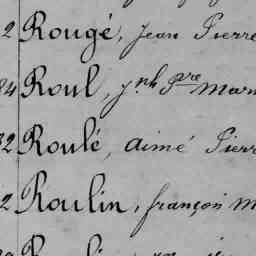 2 Rougé, Jean Pierre
84 Roul, Jph Pre Mari
32 Roulé, aimé Pierr
2 Roulin, françois M